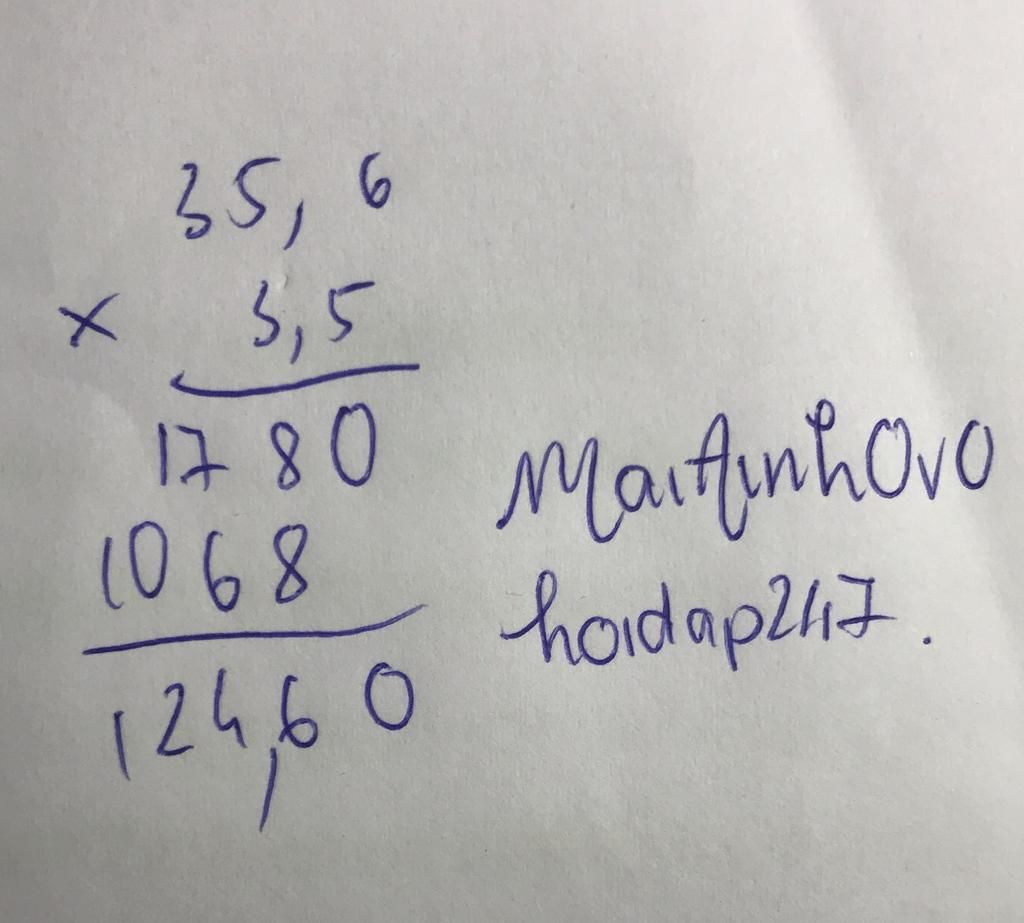 35,6
× 3,5
1780
1068
124,60
MaiAinhOvO
hoidap247.